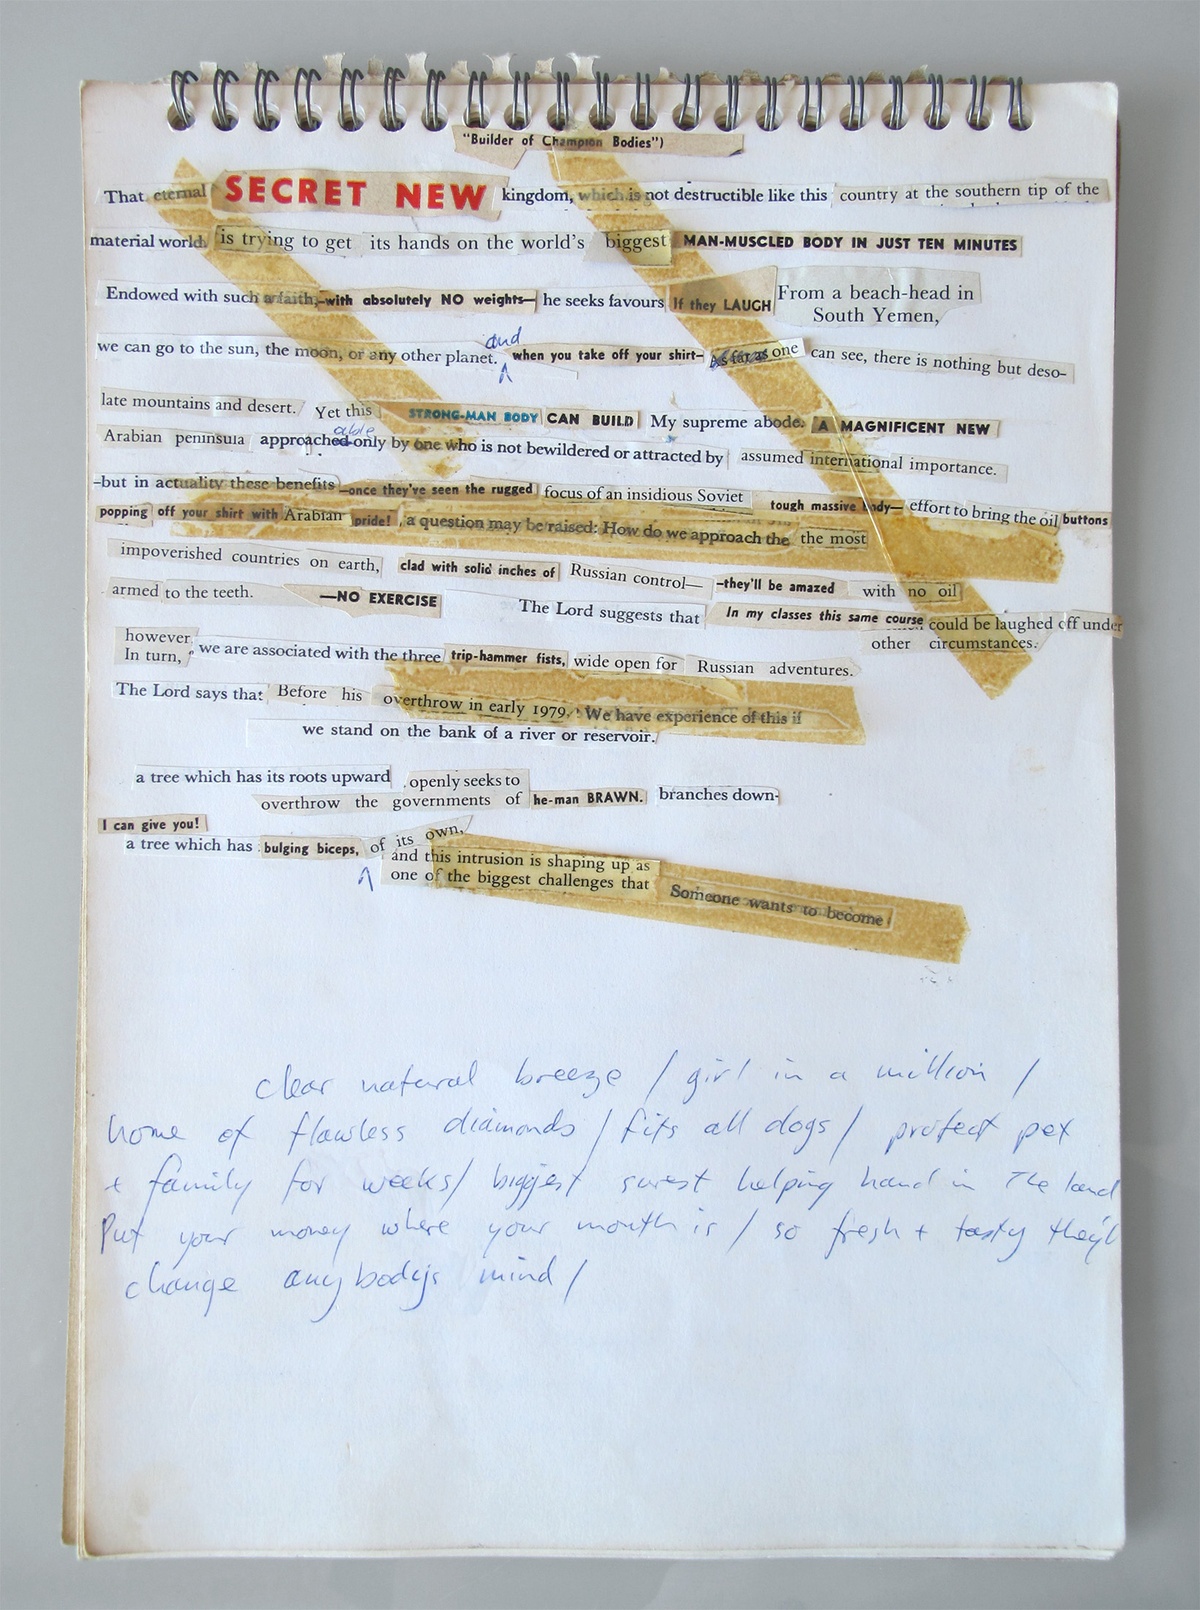 "Builder of Champion Bodies")
That eternal SECRET NEW kingdom, which is not destructible like this country at the southern tip of the
material world is trying to get its hands on the world's biggest MAN-MUSCLED BODY IN JUST TEN MINUTES
Endowed with such a faith, –with absolutely NO weights– he seeks favours If they LAUGH From a beach-head in
South Yemen,
we can go to the sun, the moon, or any other planet. and when you take off your shirt– As far as one can see, there is nothing but deso-
late mountains and desert. Yet this STRONG-MAN BODY CAN BUILD My supreme abode. A MAGNIFICENT NEW
Arabian peninsula approached able only by one who is not bewildered or attracted by assumed international importance.
–but in actuality these benefits –once they've seen the rugged focus of an insidious Soviet tough massive body– effort to bring the oil buttons
popping off your shirt with Arabian pride! , a question may be raised: How do we approach the the most
impoverished countries on earth, clad with solid inches of Russian control— –they'll be amazed with no oil
armed to the teeth. —NO EXERCISE The Lord suggests that In my classes this same course could be laughed off under
other circumstances.
however,
In turn, we are associated with the three trip-hammer fists, wide open for Russian adventures.
The Lord says that Before his overthrow in early 1979. We have experience of this if
we stand on the bank of a river or reservoir.
a tree which has its roots upward openly seeks to
overthrow the governments of he-man BRAWN. branches down-
I can give you!
a tree which has bulging biceps, of its own,
and this intrusion is shaping up as
one of the biggest challenges that Someone wants to become
clear natural breeze / girl in a million /
home of flawless diamonds / fits all dogs / protect pet
+ family for weeks / biggest surest helping hand in The land
Put your money where your mouth is / so fresh + tasty they'll
change anybodys mind /